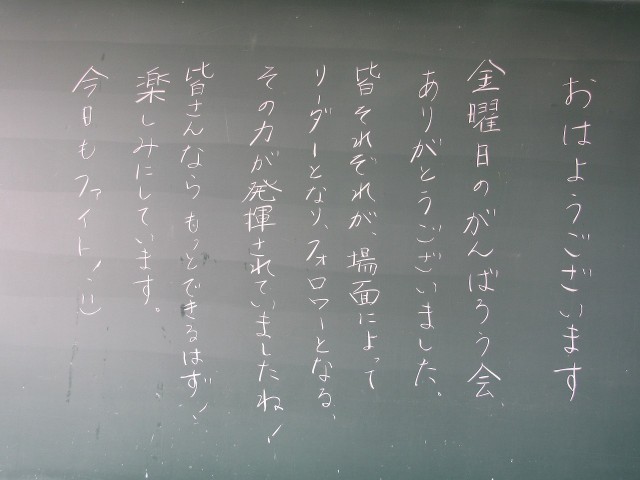 おはようございます
金曜日のがんばろう会
ありがとうございました。
皆それぞれが、場面によって
リーダーとなり、フォロワーとなる、
その力が発揮されていましたね!
皆さんならもっとできるはず!、
楽しみにしています。
今日もファイト!:)